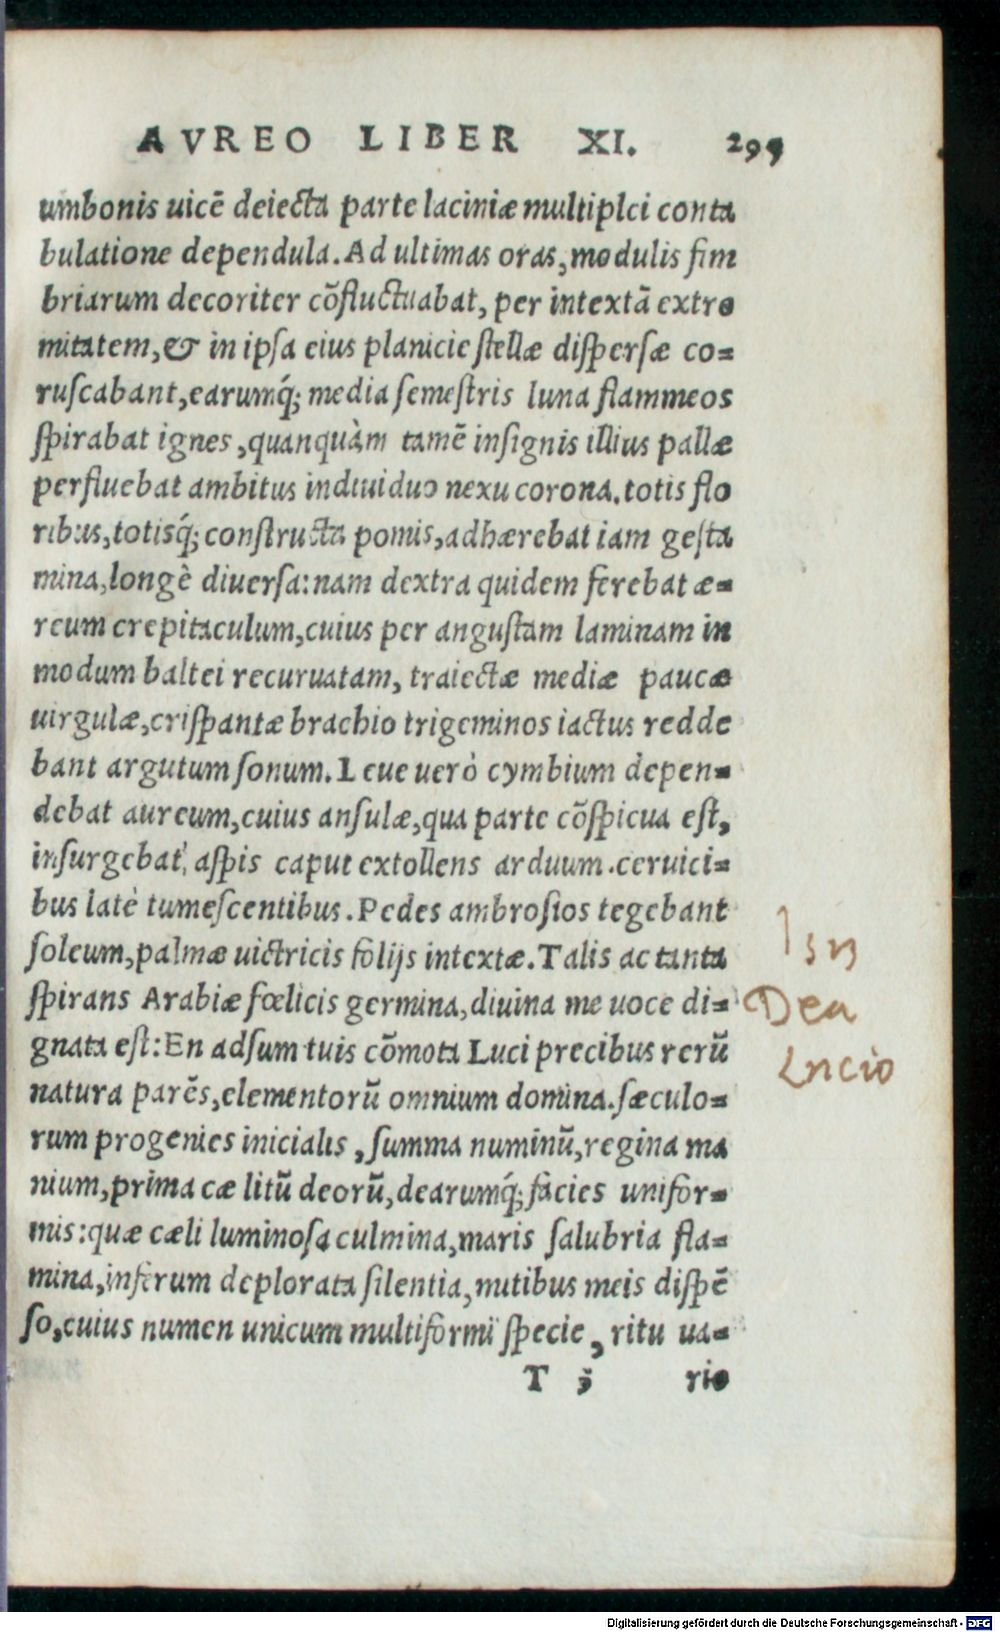 AVREO LIBER XI. 295
umbonis uicē deiecta parte laciniæ multiplci conta
bulatione dependula. Ad ultimas oras, modulis fim
briarum decoriter cōfluctuabat, per intextā extre
mitatem, & in ipsa eius planicie stellæ dispersæ co=
ruscabant, earumq́; media semestris luna flammeos
spirabat ignes, quanquàm tamē insignis illius pallæ
perfluebat ambitus indiuiduo nexu corona. totis flo
ribus, totisq́; constructa pomis, adhærebat iam gesta
mina, longè diuersa: nam dextra quidem ferebat æ=
reum crepitaculum, cuius per angustam laminam in
modum baltei recuruatam, traiectæ mediæ paucæ
uirgulæ, crispantæ brachio trigeminos iactus redde
bant argutum sonum. Leue uerò cymbium depen=
debat aureum, cuius ansulæ, qua parte cōspicua est,
insurgebat, aspis caput extollens arduum. ceruici=
bus latè tumescentibus. Pedes ambrosios tegebant
soleum, palmæ uictricis folijs intextæ. Talis ac tanta
spirans Arabiæ fœlicis germina, diuina me uoce di=
gnata est: En adsum tuis cōmota Luci precibus rerū
natura parēs, elementorū omnium domina. sæculo=
rum progenies inicialis, summa numinū, regina ma
nium, prima cælitū deorū, dearumq́; facies unifor=
mis: quæ cæli luminosa culmina, maris salubria fla=
mina, inferum deplorata silentia, nutibus meis dispē
so, cuius numen unicum multiformi specie, ritu ua=
T 3 rio
Dea
Lucio
Digitalisierung gefördert durch die Deutsche Forschungsgemeinschaft - DFG